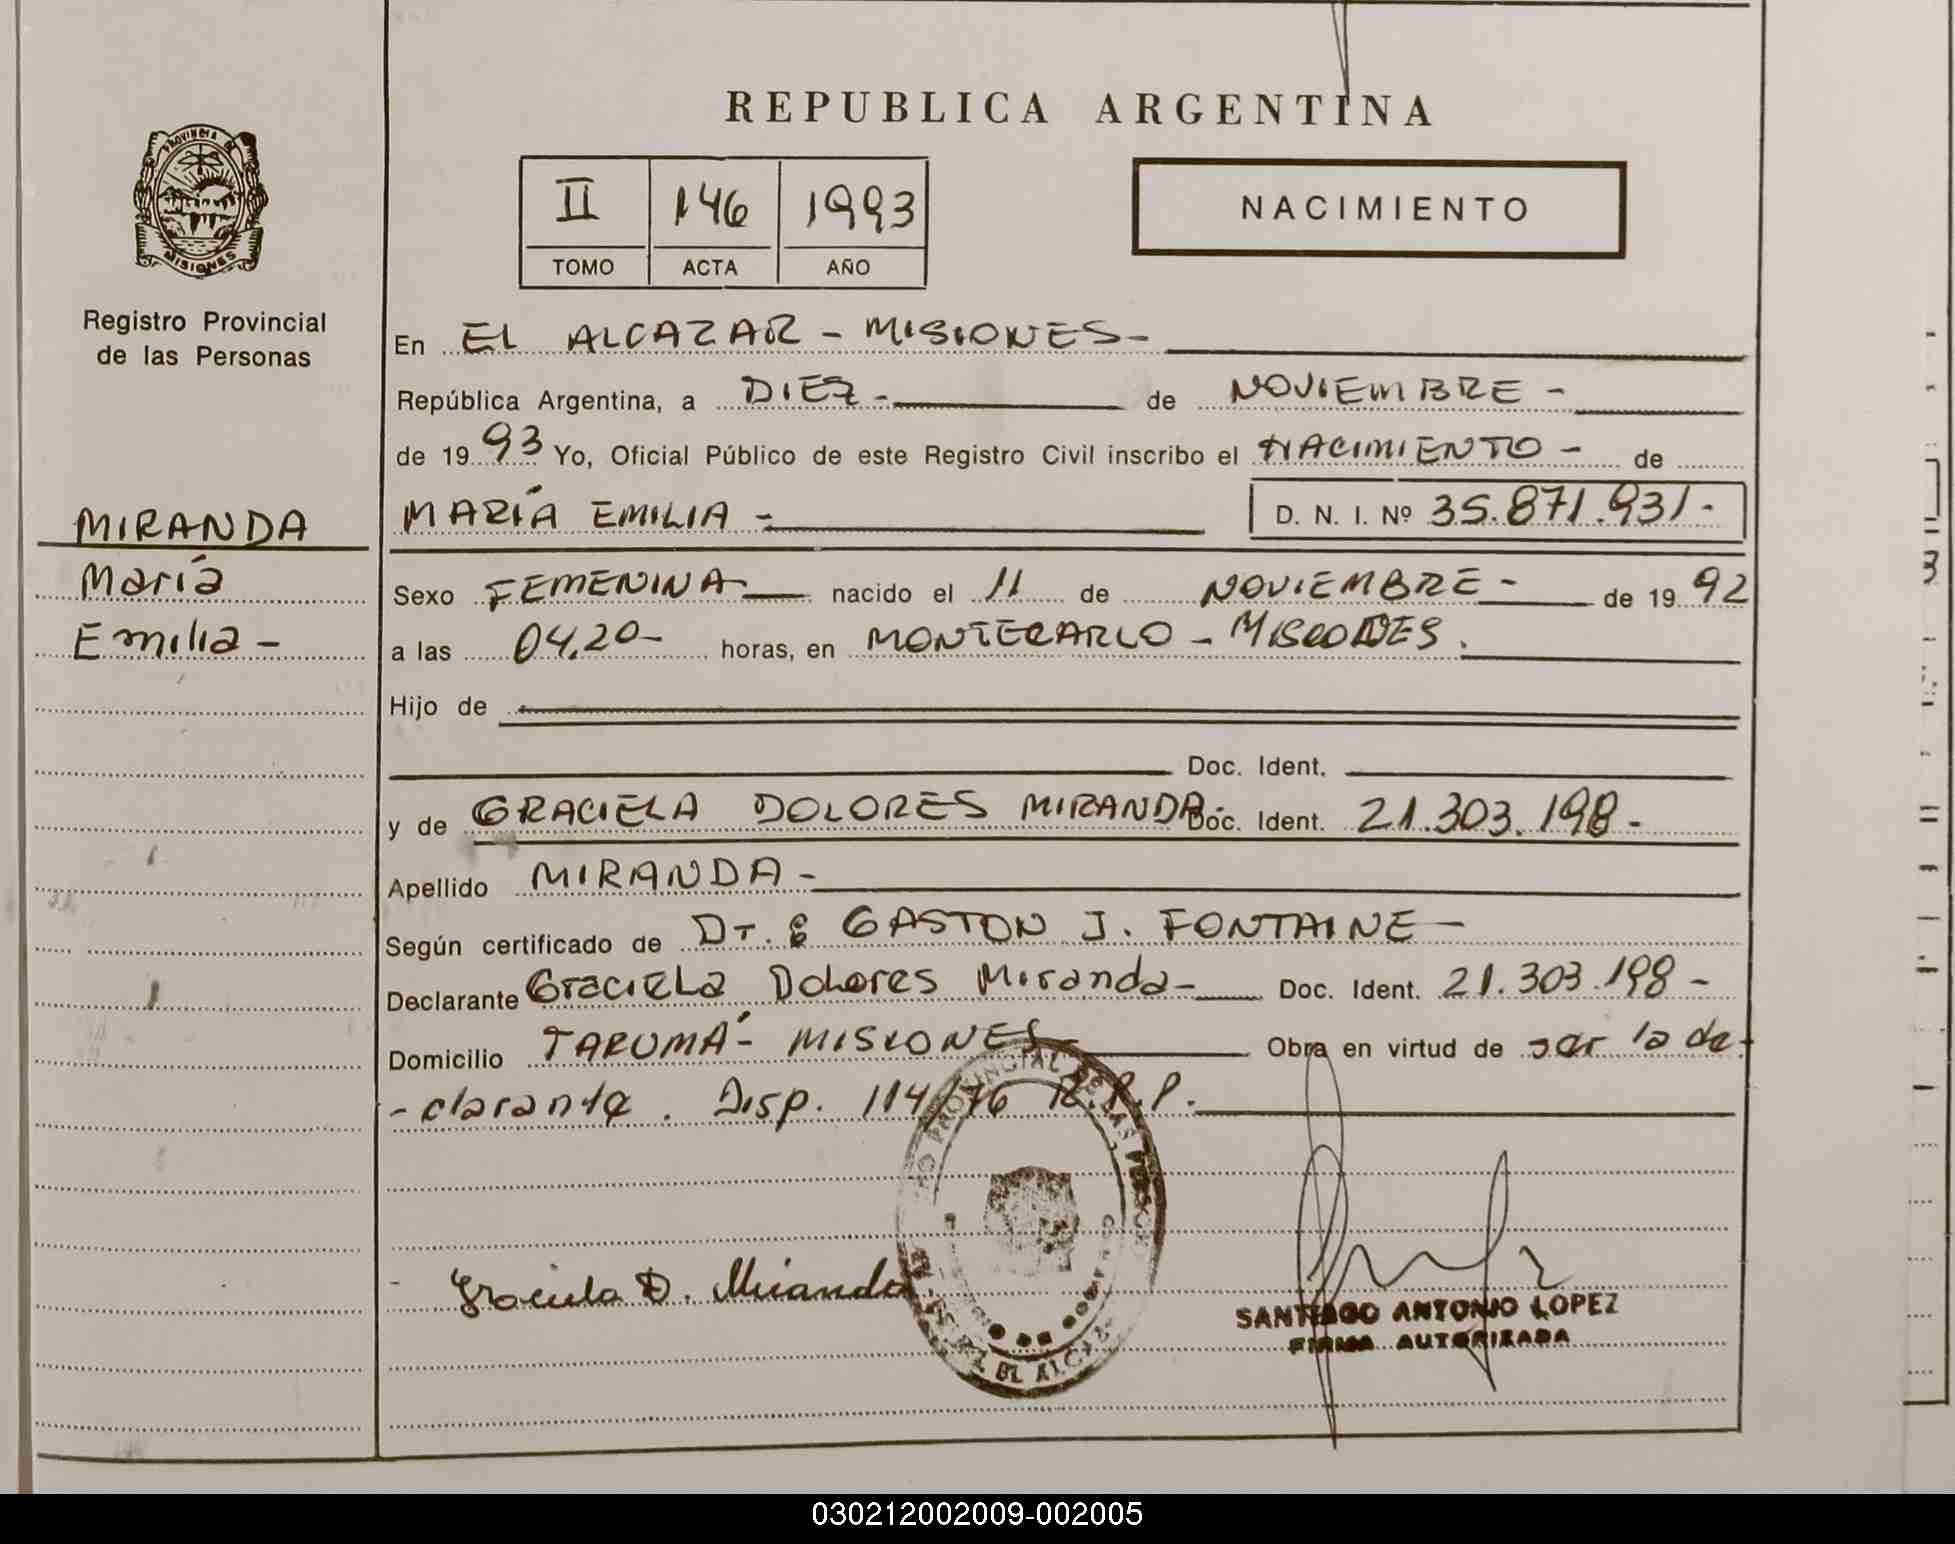 REPUBLICA ARGENTINA
PROVINCIA DE
MISIONES
Registro Provincial
de las Personas
II 146 1993
TOMO ACTA AÑO
NACIMIENTO
En EL ALCAZAR - MISIONES -
República Argentina, a DIEZ - de NOVIEMBRE -
de 19 93 Yo, Oficial Público de este Registro Civil inscribo el NACIMIENTO - de
MARÍA EMILIA - D. N. I. Nº 35.871.931.-
MIRANDA
María
Emilia -
Sexo FEMENINA nacido el 11 de NOVIEMBRE - de 19 92
a las 04,20- horas, en MONTECARLO - MISIONES.
Hijo de
Doc. Ident.
y de GRACIELA DOLORES MIRANDA.- Doc. Ident. 21.303.198 -
Apellido MIRANDA -
Según certificado de Dr. GASTON J. FONTAINE -
Declarante Graciela Dolores Miranda - Doc. Ident. 21.303.198 -
Domicilio TARUMÁ - MISIONES Obra en virtud de ser la de-
-clarante. Disp. 114/76 R.P.P.
PROVINCIAL DE LAS
EL ALCAZ
Graciela D. Miranda
SANTIAGO ANTONIO LOPEZ
FIRMA AUTORIZADA
030212002009-002005